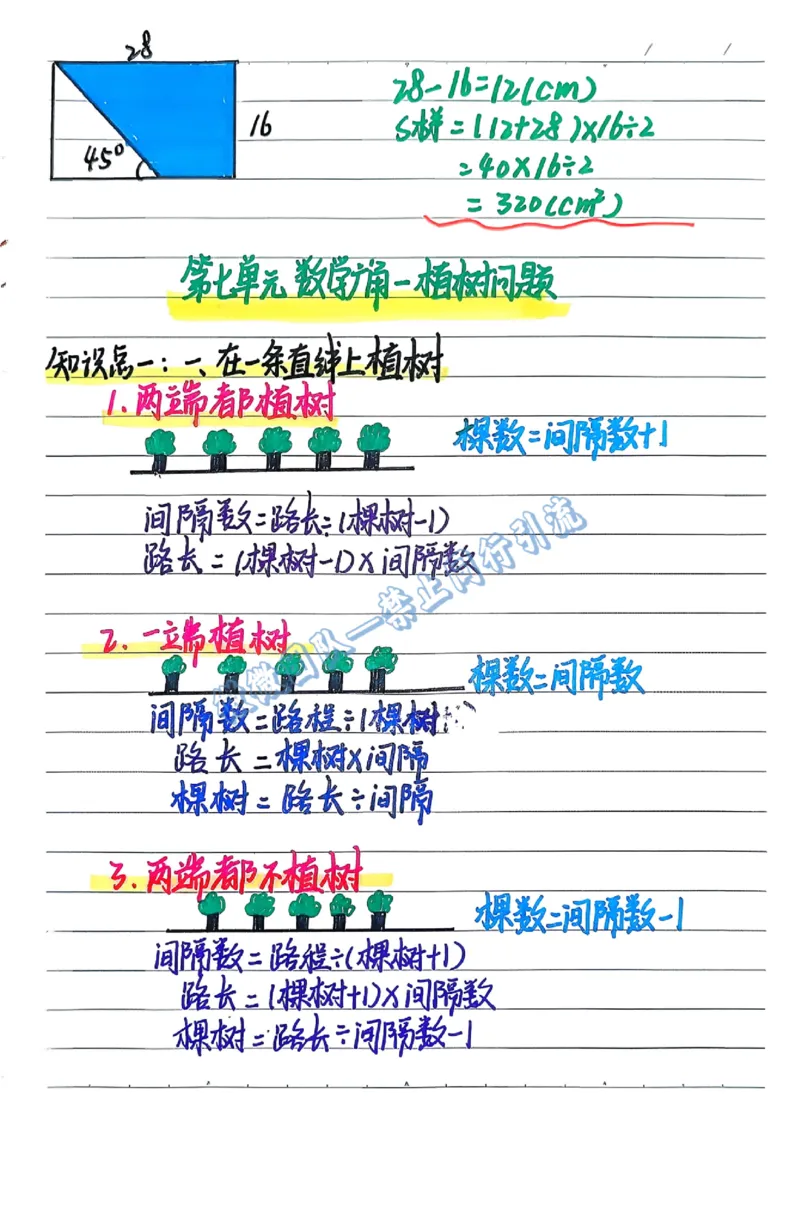 28
16
45°
28-16=12(cm)
S梯=(12+28)×16÷2
=40×16÷2
=320(cm²)
第七单元 数学广角—植树问题
知识点一:一、在一条直线上植树
1.两端都植树
棵数=间隔数+1
间隔数=路长÷(棵树-1)
路长=(棵树-1)×间隔数
2.一端植树
棵数=间隔数
间隔数=路程÷(棵树
路长=棵树×间隔
棵树=路长÷间隔
3.两端都不植树
棵数=间隔数-1
间隔数=路程÷(棵树+1)
路长=(棵树+1)×间隔数
棵树=路长÷间隔数-1
团队—禁止同行引流